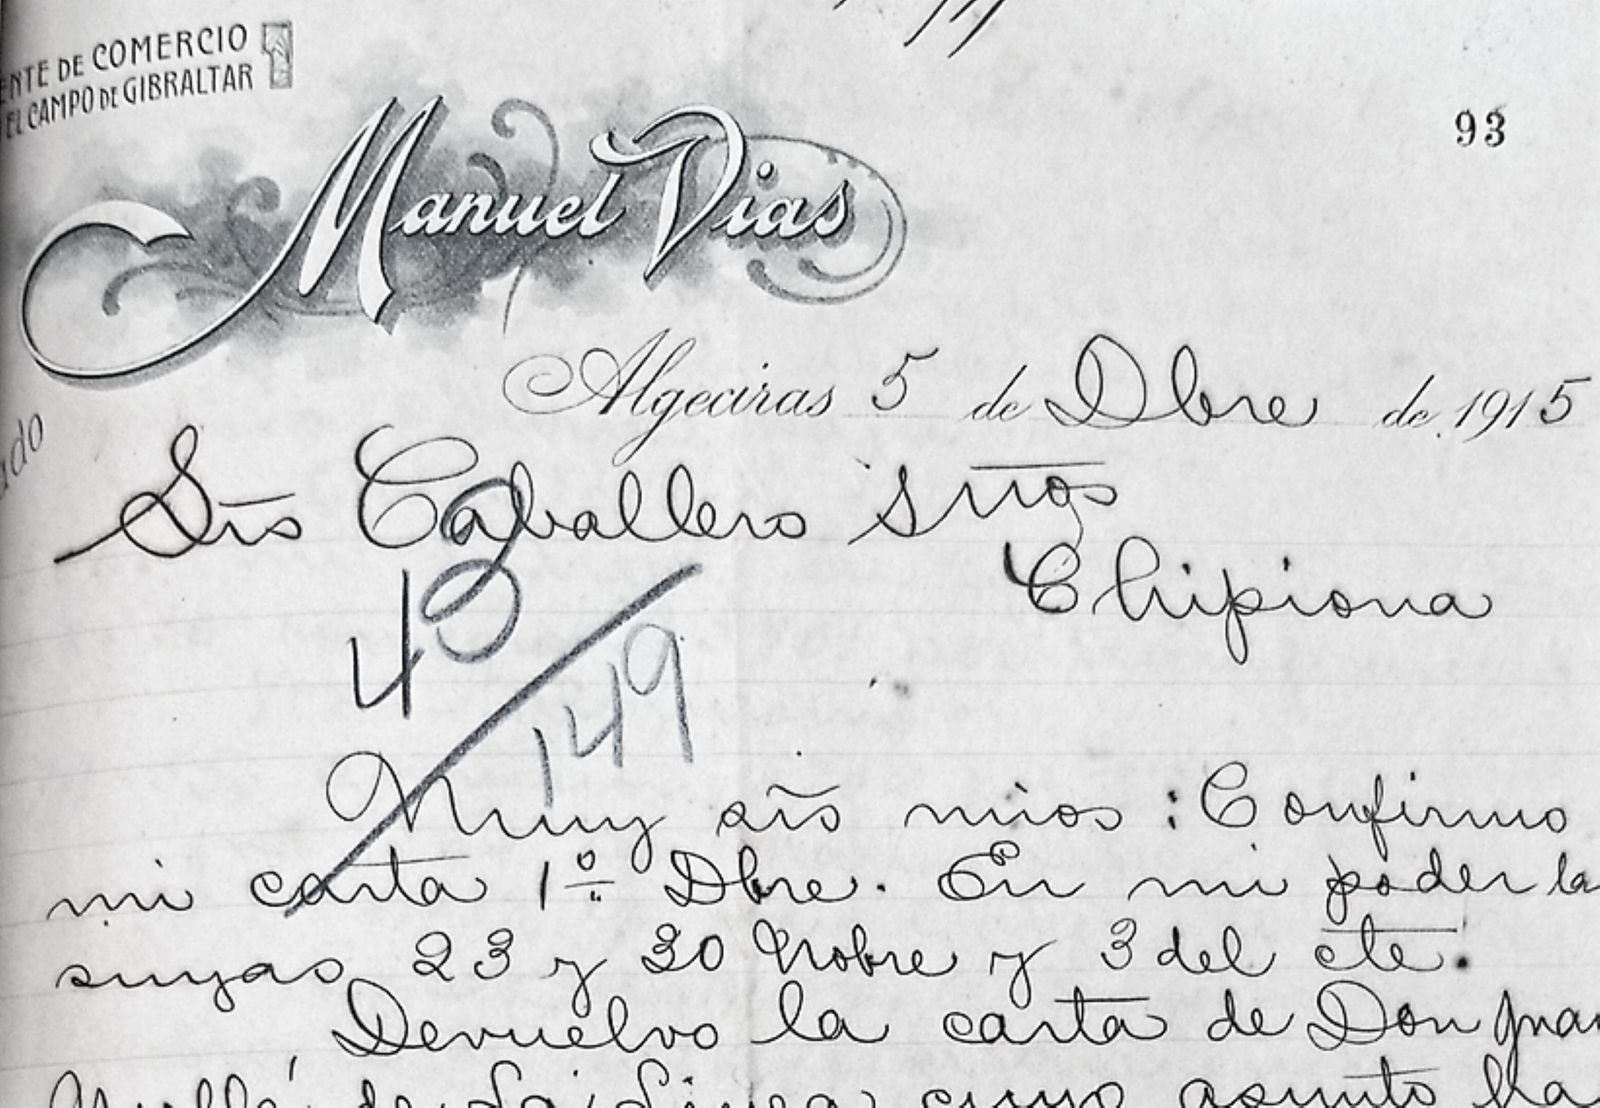 ENTE DE COMERCIO
EL CAMPO DE GIBRALTAR
93
Manuel Vias
Algeciras 5 de Dbre de 1915
Srs Caballero Hnos
Chipiona
149
Muy srs mios: Confirmo
mi carta 1º Dbre. En mi poder la
suyas 23 y 30 Nobre y 3 del cte.
Devuelvo la carta de Don Juan
de La Linea cuyo asunto ha